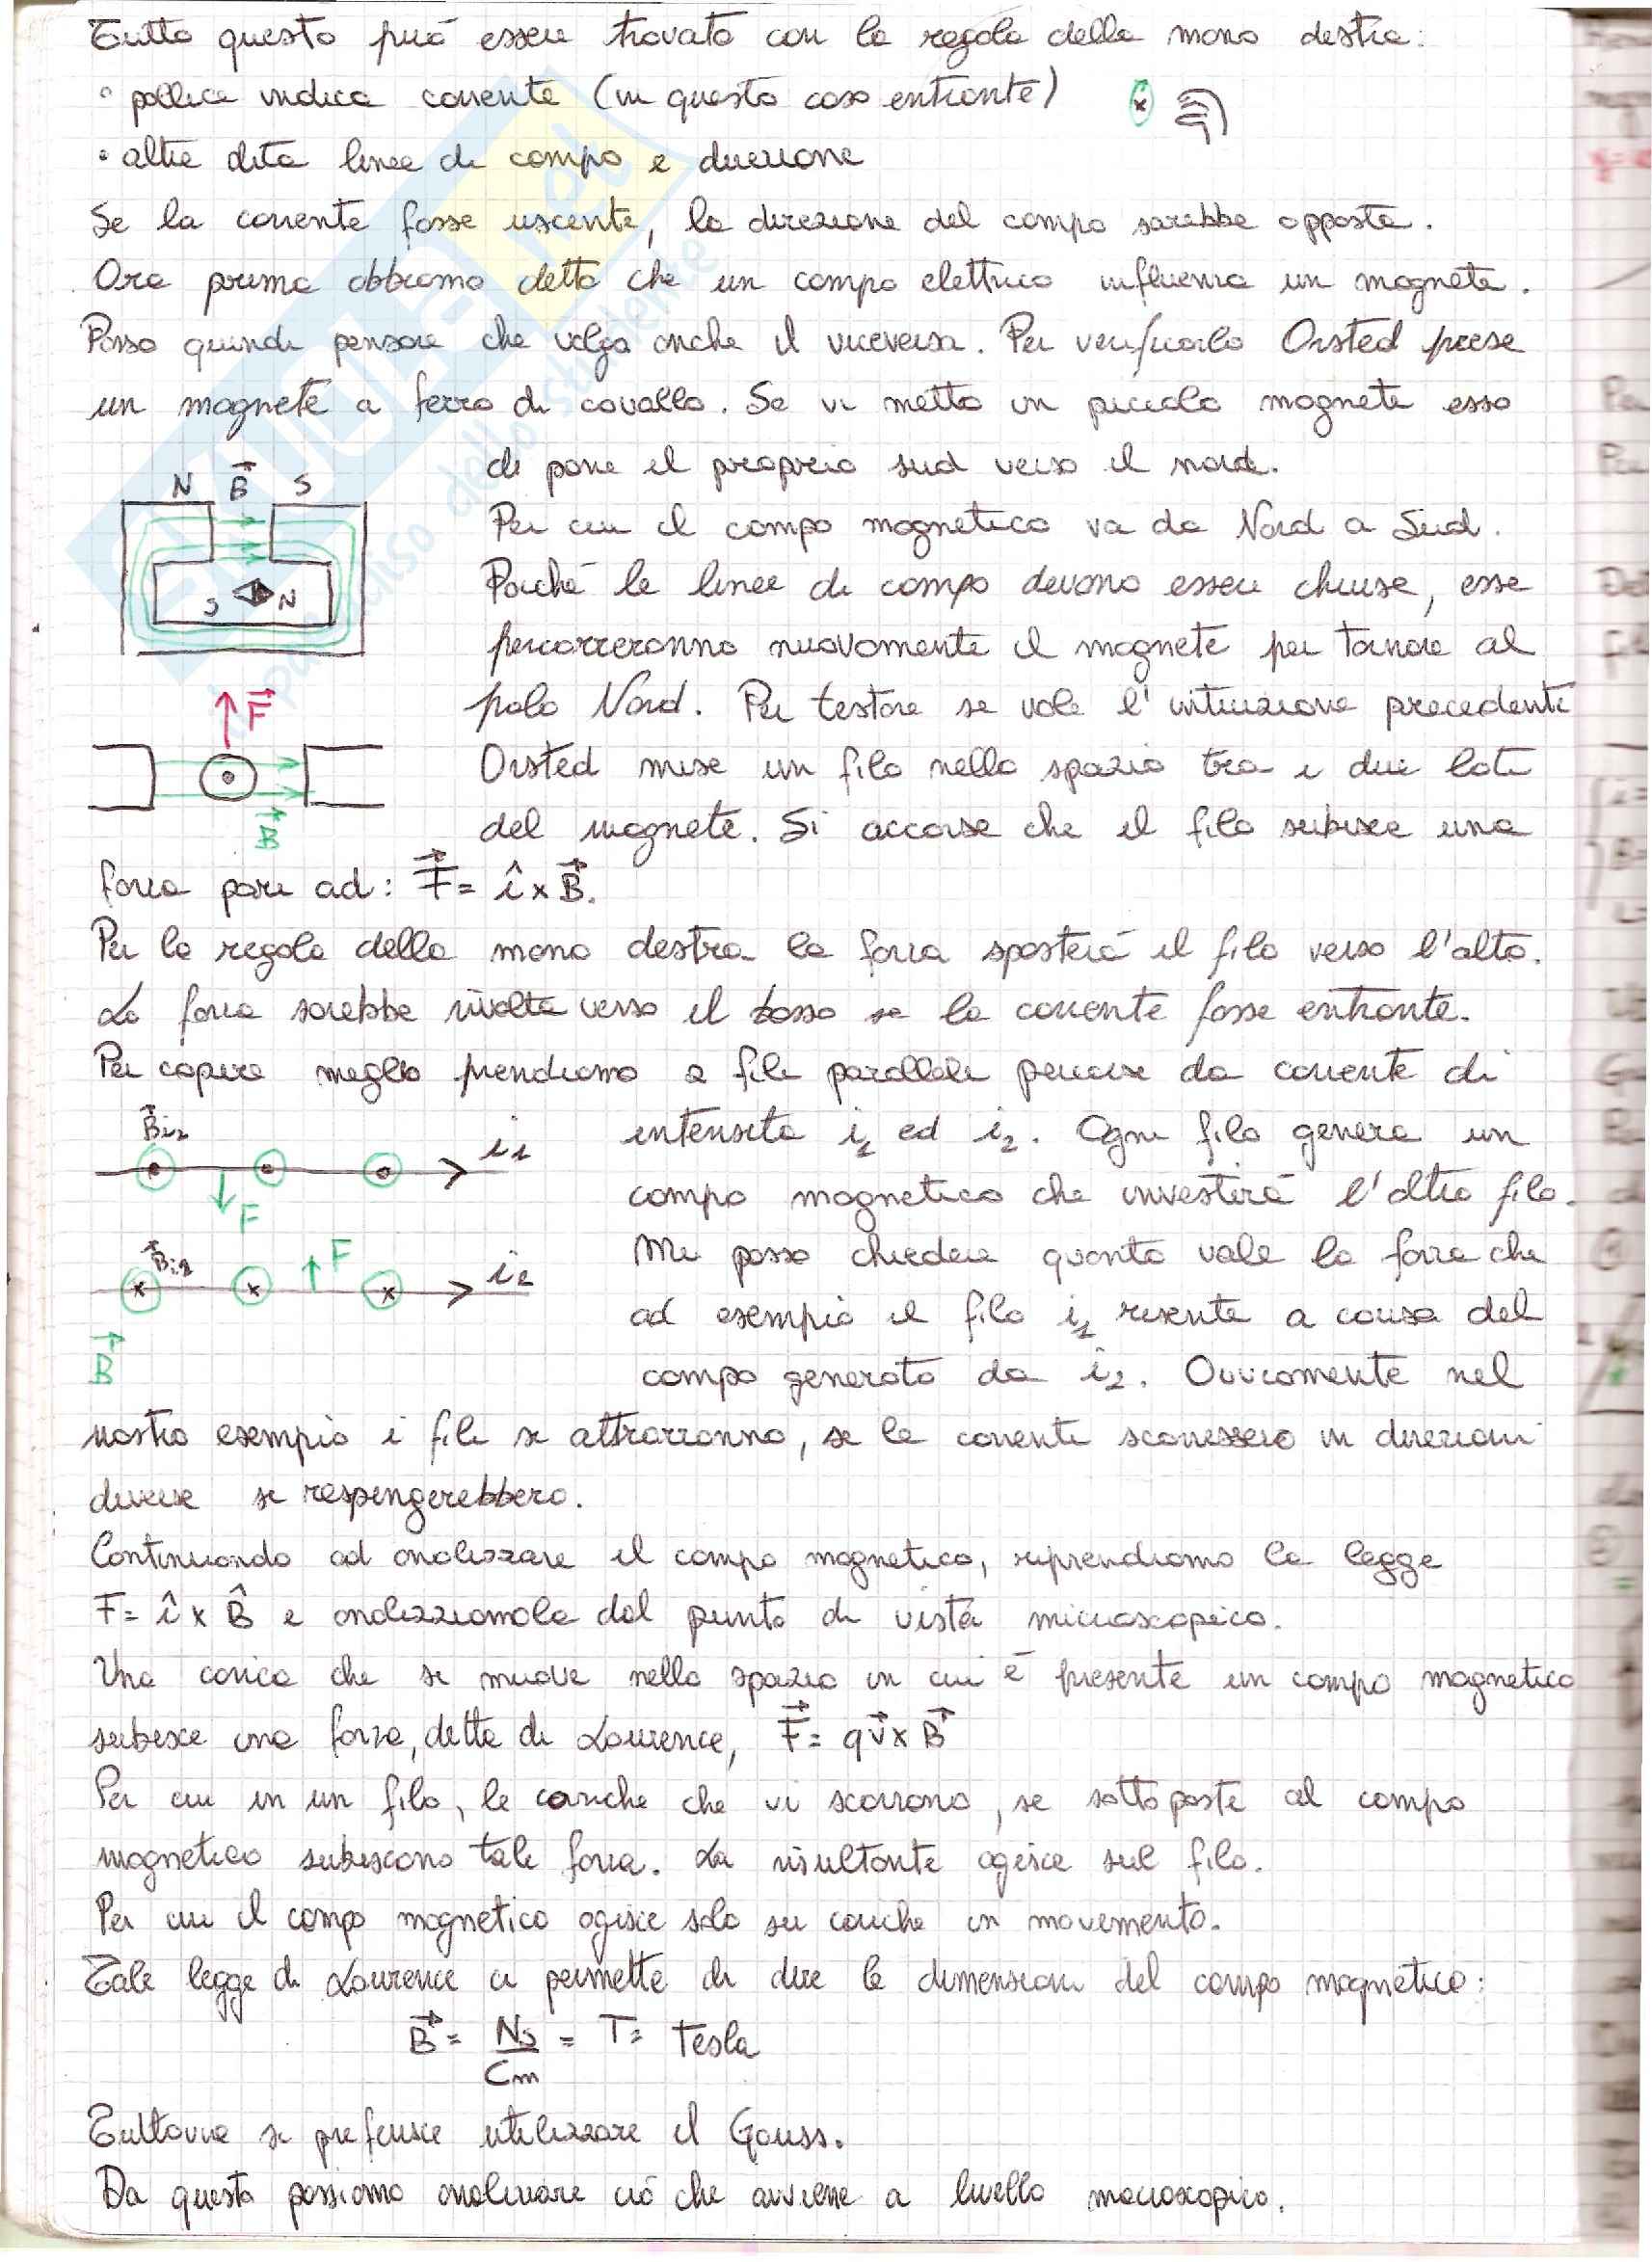 Tutto questo può essere trovato con la regola della mano destra:
• pollice indica corrente (in questo caso entrante)
• altre dita linee di campo e direzione
Se la corrente fosse uscente, la direzione del campo sarebbe opposta.
Ora prima abbiamo detto che un campo elettrico influenza un magnete.
Posso quindi pensare che valga anche il viceversa. Per verificarlo Orsted prese
un magnete a ferro di cavallo. Se vi metto un piccolo magnete esso
di pone il proprio sud verso il nord.
N B S
Per cui il campo magnetico va da Nord a Sud.
Poiché le linee di campo devono essere chiuse, esse
S N
percorreranno nuovamente il magnete per tornare al
F
polo Nord. Per testare se vale l'intuizione precedente
Orsted mise un filo nello spazio tra i due lati
B
del magnete. Si accorse che il filo subisce una
forza pari ad: F = î x B.
Per la regola della mano destra la forza sposterà il filo verso l'alto.
La forza sarebbe rivolta verso il basso se la corrente fosse entrante.
Per capire meglio prendiamo 2 fili paralleli percorsi da corrente di
Bi2 i1
intensità i1 ed i2. Ogni filo genera un
F
campo magnetico che investirà l'altro filo.
Bi1 F i2
Mi posso chiedere quanto vale la forza che
ad esempio il filo i1 risente a causa del
B
campo generato da i2. Ovviamente nel
nostro esempio i fili si attrarranno, se le correnti scorressero in direzioni
diverse si respingerebbero.
Continuando ad analizzare il campo magnetico, riprendiamo la legge
F = î x B̂ e analizziamola dal punto di vista microscopico.
Una carica che si muove nello spazio in cui è presente un campo magnetico
subisce una forza, detta di Lourence, F = qv x B
Per cui in un filo, le cariche che vi scorrono, se sottoposte al campo
magnetico subiscono tale forza. La risultante agisce sul filo.
Per cui il campo magnetico agisce solo su cariche in movimento.
Tale legge di Lourence ci permette di dire le dimensioni del campo magnetico:
B = Ns/Cm = T = Tesla
Tuttavia si preferisce utilizzare il Gauss.
Da questa possiamo analizzare ciò che avviene a livello macroscopico.